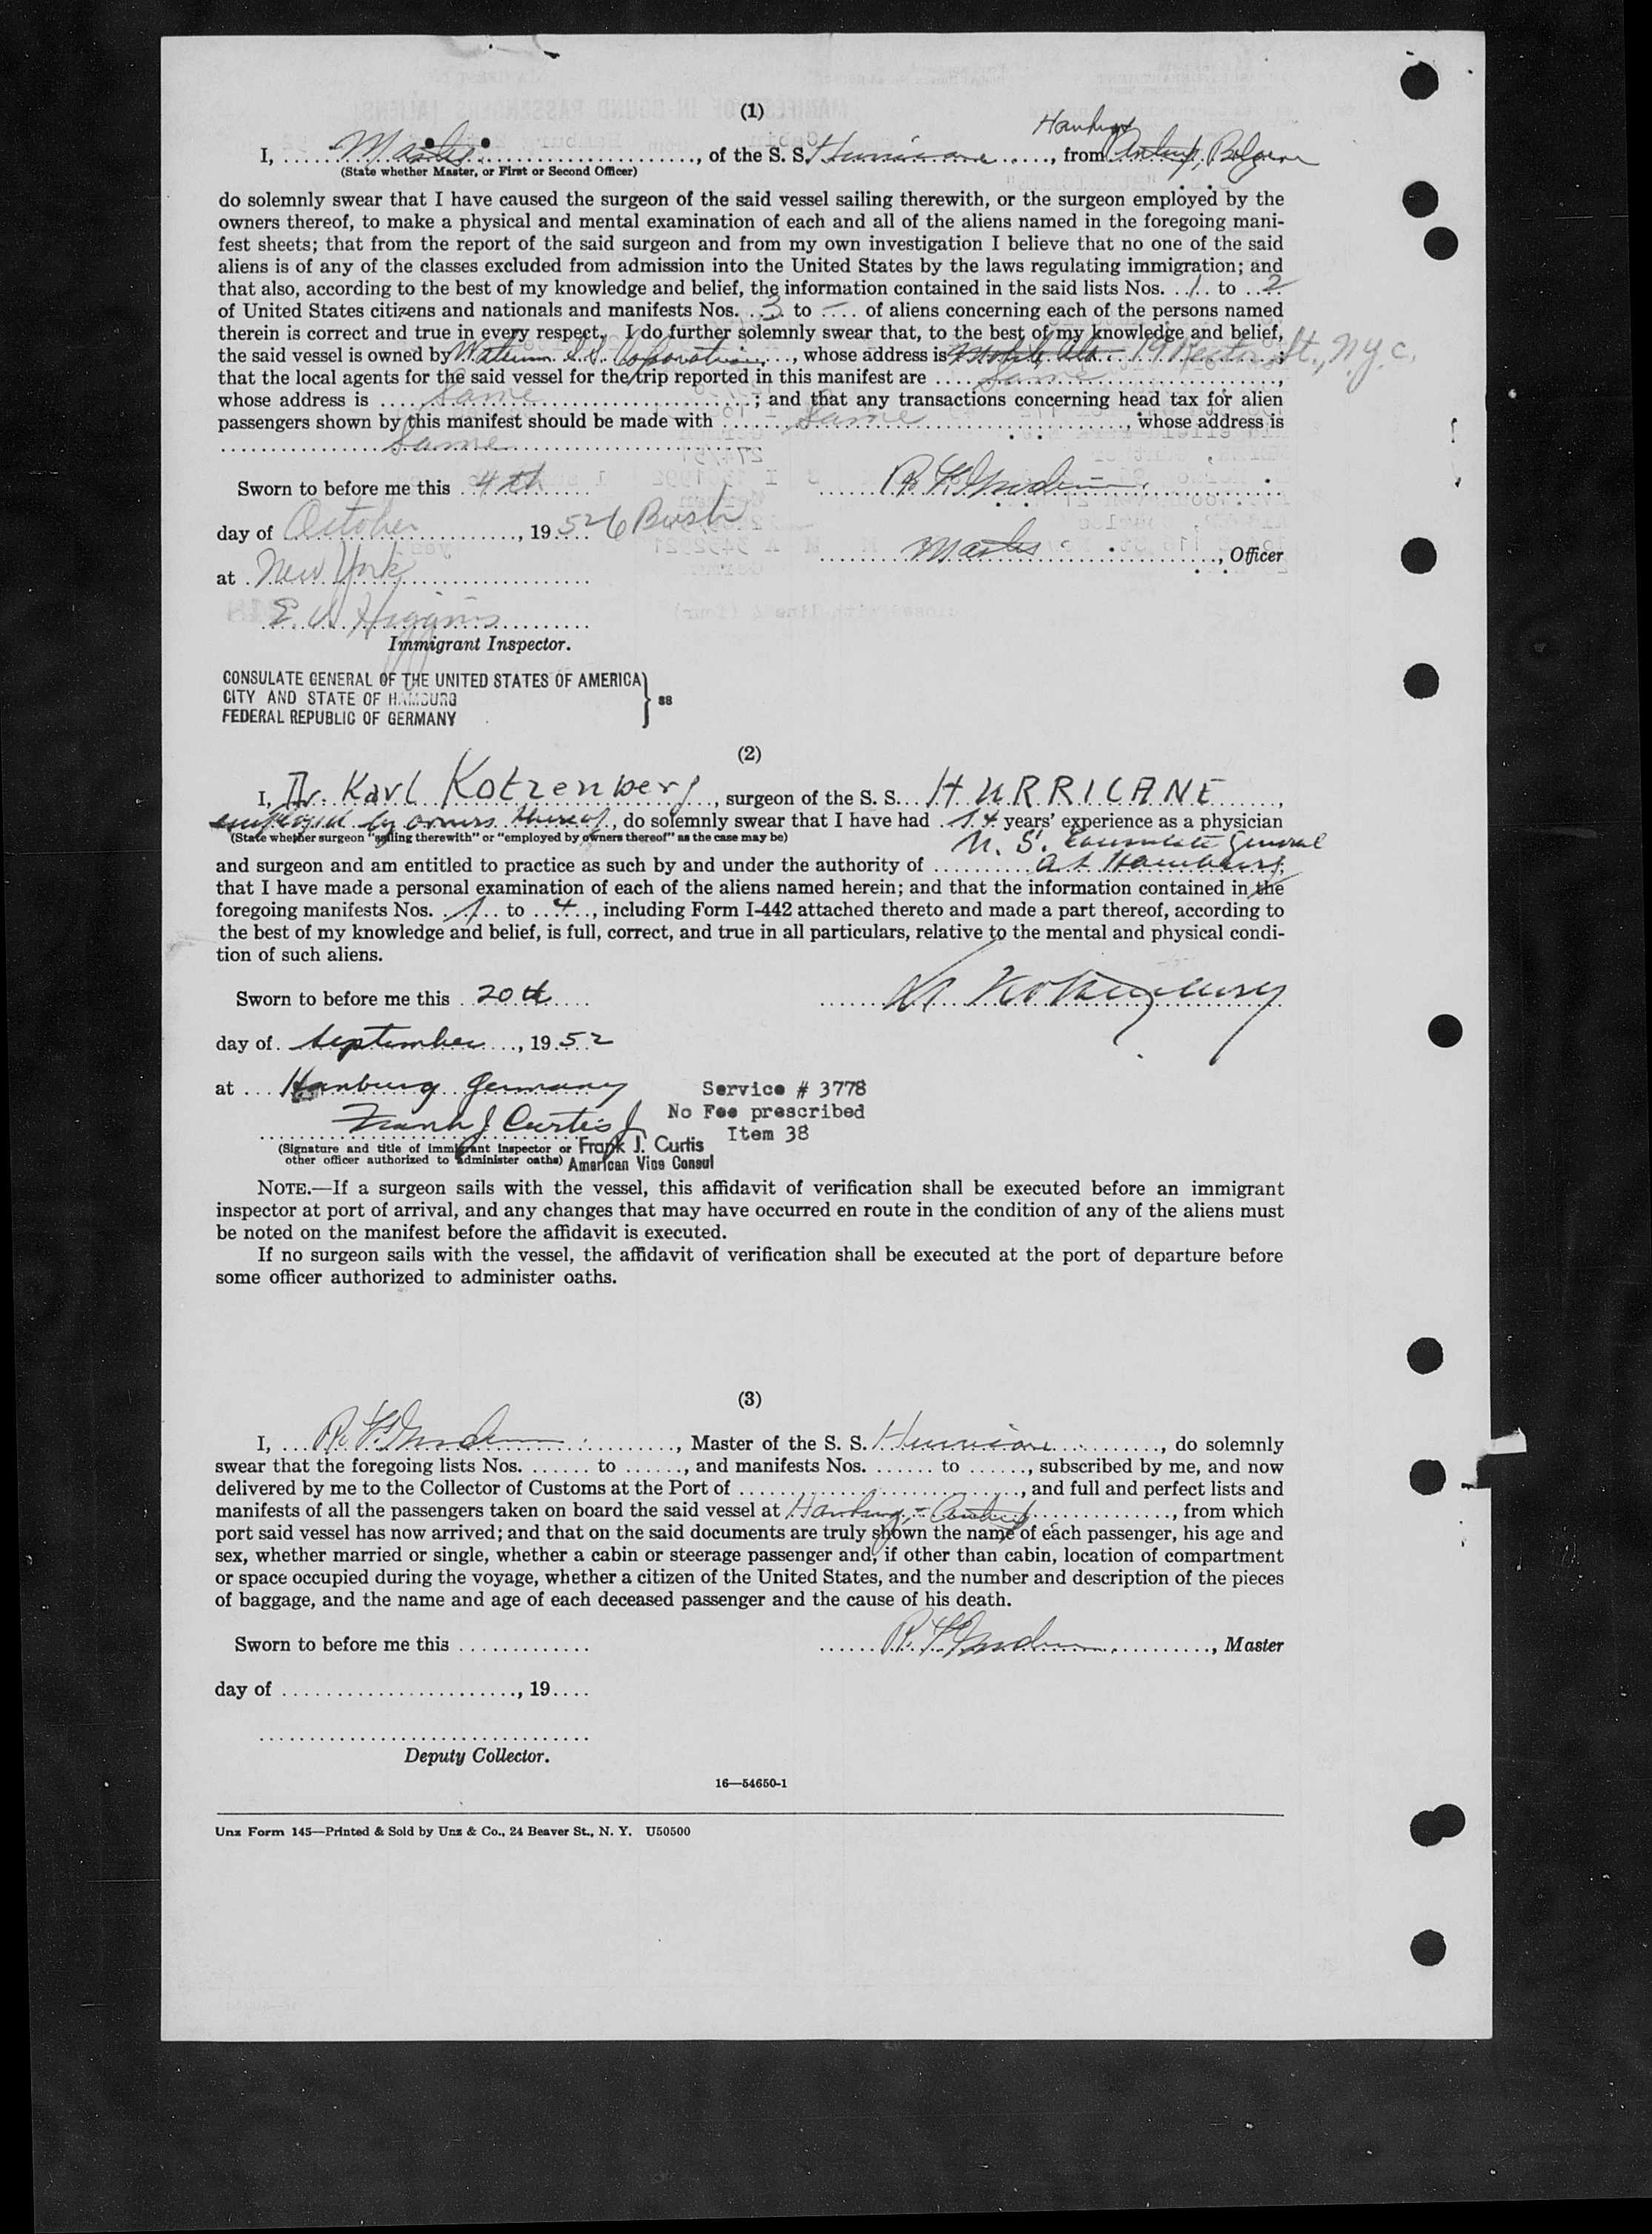 (1)
I, Master, of the S. S. Hurricane, from Hamburg Antwerp, Belgium
(State whether Master, or First or Second Officer)
do solemnly swear that I have caused the surgeon of the said vessel sailing therewith, or the surgeon employed by the
owners thereof, to make a physical and mental examination of each and all of the aliens named in the foregoing mani-
fest sheets; that from the report of the said surgeon and from my own investigation I believe that no one of the said
aliens is of any of the classes excluded from admission into the United States by the laws regulating immigration; and
that also, according to the best of my knowledge and belief, the information contained in the said lists Nos. 1 to 2
of United States citizens and nationals and manifests Nos. 3 to — of aliens concerning each of the persons named
therein is correct and true in every respect. I do further solemnly swear that, to the best of my knowledge and belief,
the said vessel is owned by Waterman S.S. Corporation, whose address is Mobile Ala. 19 Rector St., N.Y.C.;
that the local agents for the said vessel for the trip reported in this manifest are Same,
whose address is Same; and that any transactions concerning head tax for alien
passengers shown by this manifest should be made with Same, whose address is
Same
Sworn to before me this 4th
day of October, 1952 6 Bush
Master, Officer
at New York
E. Higgins
Immigrant Inspector.
CONSULATE GENERAL OF THE UNITED STATES OF AMERICA
CITY AND STATE OF HAMBURG } SS
FEDERAL REPUBLIC OF GERMANY
(2)
I, Dr. Karl Kotzenberg, surgeon of the S. S. HURRICANE,
employed by owners thereof, do solemnly swear that I have had 14 years' experience as a physician
(State whether surgeon "sailing therewith" or "employed by owners thereof" as the case may be)
U. S. Consulate General
and surgeon and am entitled to practice as such by and under the authority of at Hamburg,
that I have made a personal examination of each of the aliens named herein; and that the information contained in the
foregoing manifests Nos. 1 to 4, including Form I-442 attached thereto and made a part thereof, according to
the best of my knowledge and belief, is full, correct, and true in all particulars, relative to the mental and physical condi-
tion of such aliens.
Sworn to before me this 20th
Dr Kotzenberg
day of September, 1952
at Hamburg Germany
Service # 3778
No Fee prescribed
Item 38
Frank J. Curtis Jr
(Signature and title of immigrant inspector or
other officer authorized to administer oaths)
Frank J. Curtis
American Vice Consul
NOTE.—If a surgeon sails with the vessel, this affidavit of verification shall be executed before an immigrant
inspector at port of arrival, and any changes that may have occurred en route in the condition of any of the aliens must
be noted on the manifest before the affidavit is executed.
If no surgeon sails with the vessel, the affidavit of verification shall be executed at the port of departure before
some officer authorized to administer oaths.
(3)
I, , Master of the S. S. Hurricane, do solemnly
swear that the foregoing lists Nos. ...... to ......, and manifests Nos. ...... to ......, subscribed by me, and now
delivered by me to the Collector of Customs at the Port of ............................, and full and perfect lists and
manifests of all the passengers taken on board the said vessel at Hamburg - Antwerp, from which
port said vessel has now arrived; and that on the said documents are truly shown the name of each passenger, his age and
sex, whether married or single, whether a cabin or steerage passenger and, if other than cabin, location of compartment
or space occupied during the voyage, whether a citizen of the United States, and the number and description of the pieces
of baggage, and the name and age of each deceased passenger and the cause of his death.
Sworn to before me this .............
, Master
day of ........................, 19....
Deputy Collector.
16—54650-1
Unz Form 145—Printed & Sold by Unz & Co., 24 Beaver St., N. Y. U50500